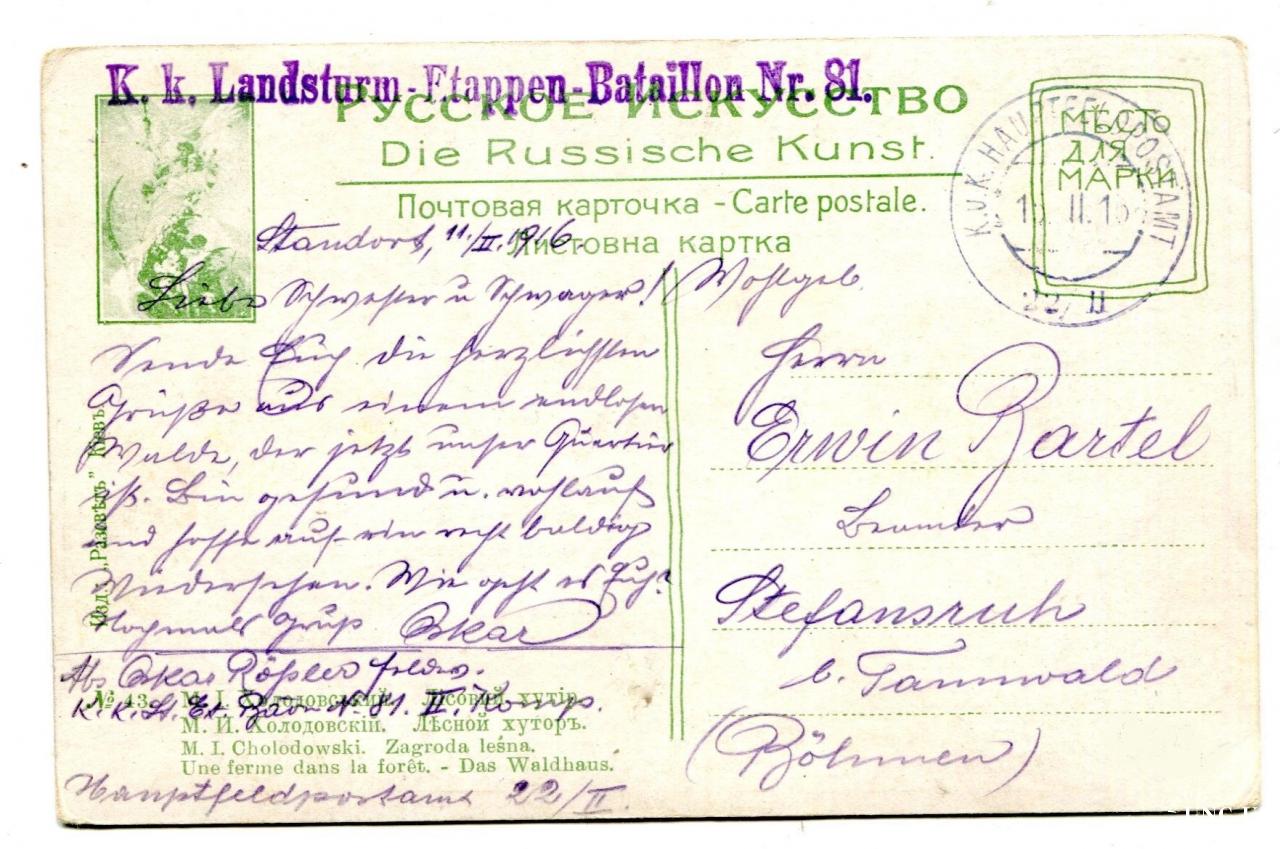 K. k. Landsturm-Etappen-Bataillon Nr. 81.
РУССКОЕ ИСКУССТВО
Die Russische Kunst.
Почтовая карточка - Carte postale.
Листовна картка
МѢСТО
ДЛЯ
МАРКИ
K.u.K. HAUPTFELDPOSTAMT
II.16
22/II
Standort, 11./II. 1916.
Liebe Schwester u Schwager!
Sende Euch die herzlichsten
Grüße aus einem endlosen
Walde, der jetzt unser Quartier
ist. Bin gesund u. wohlauf
und hoffe auf ein recht baldig
Wiedersehen. Wie geht es Euch?
Nochmals Gruß Oskar
Abs Oskar Rößler
K. k. Lst. Et. Baon № 81. II Komp.
Hauptfeldpostamt 22/II.
Wohlgeb.
Herrn
Erwin Bartel
Beamter
Stefansruh
b. Tannwald
(Böhmen)
Изд. „Разсвѣтъ” Кіевъ
№ 43. М. І. Холодовський. Лісовий хутір.
М. И. Холодовскій. Лѣсной хуторъ.
M. I. Cholodowski. Zagroda leśna.
Une ferme dans la forêt. - Das Waldhaus.